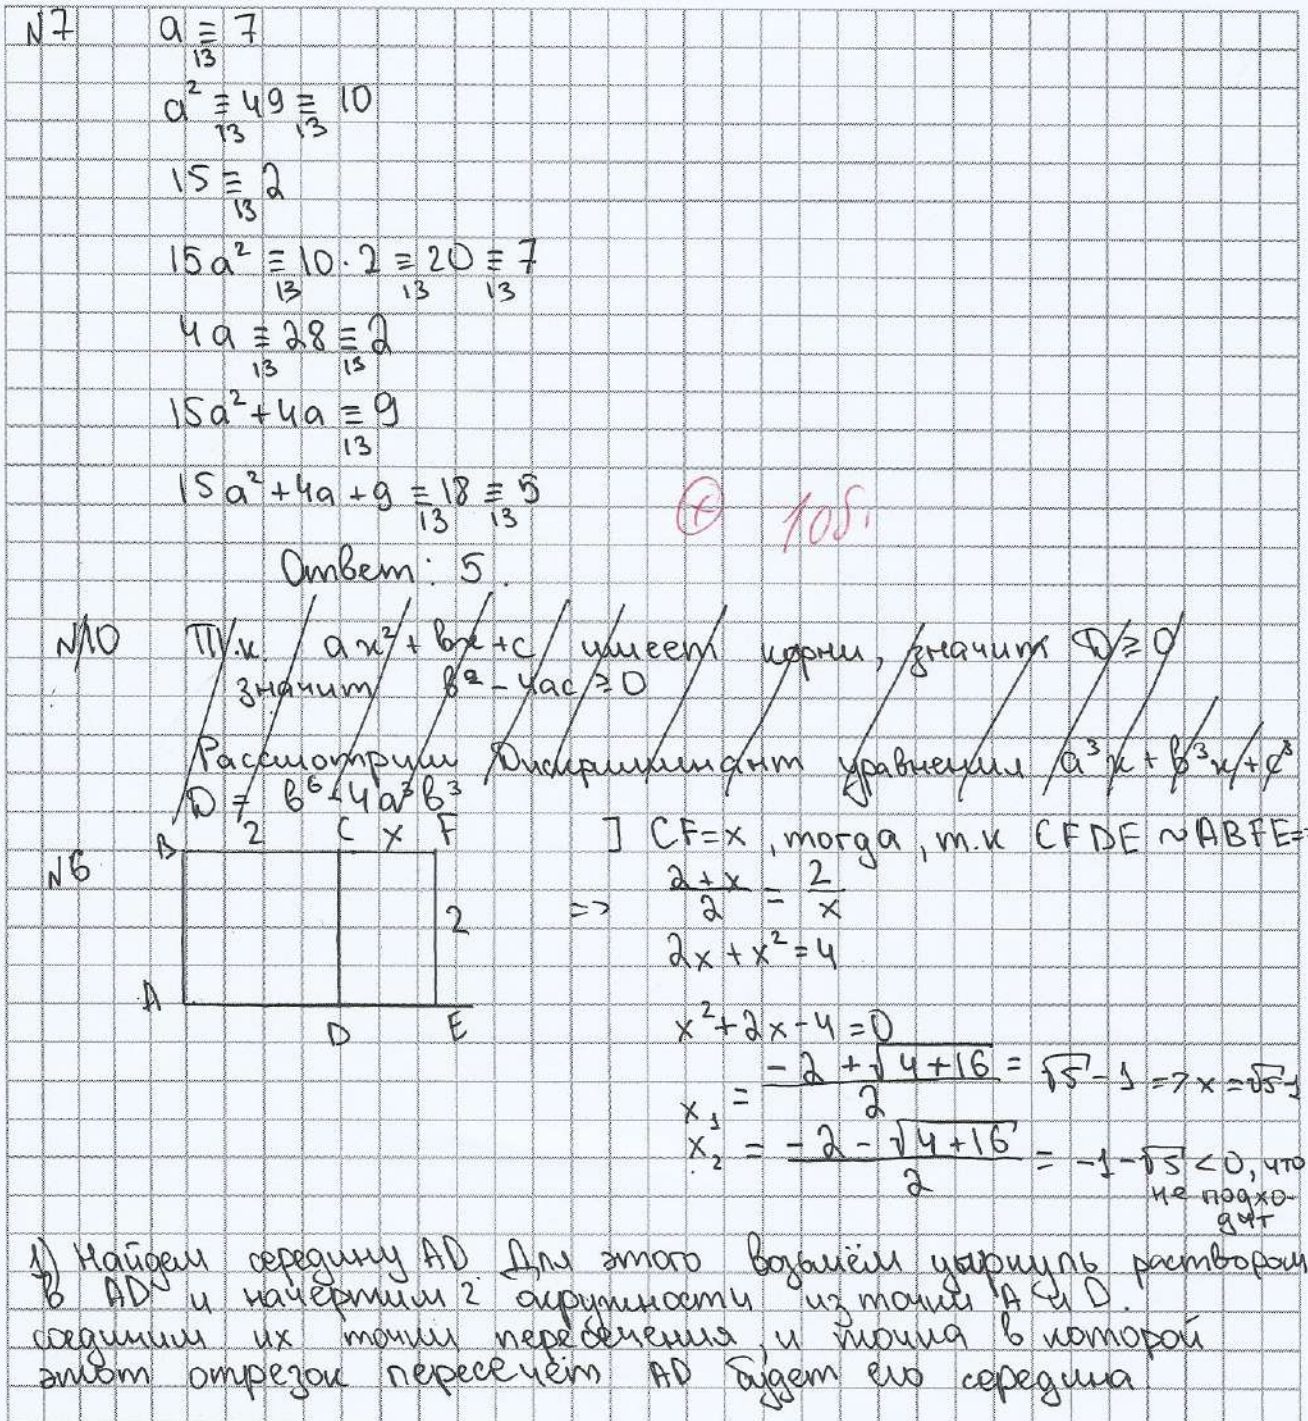 N7 a ≡₁₃ 7
a² ≡₁₃ 49 ≡₁₃ 10
15 ≡₁₃ 2
15a² ≡₁₃ 10·2 ≡₁₃ 20 ≡₁₃ 7
4a ≡₁₃ 28 ≡₁₃ 2
15a²+4a ≡₁₃ 9
15a²+4a+9 ≡₁₃ 18 ≡₁₃ 5
+ 10б.
Ответ: 5.
N10 Т.к. ax²+bx+c имеет корни, значит D≥0
значит b²-4ac≥0
Рассмотрим Дискриминант уравнения a³x+b³x+c³
D = b⁶-4a³b³
N6
B 2 C x F
2
A D E
] CF=x, тогда, т.к CFDE ~ ABFE=>
=> (2+x)/2 = 2/x
2x+x²=4
x²+2x-4=0
x₁ = (-2+√(4+16))/2 = √5-1 => x=√5-1
x₂ = (-2-√(4+16))/2 = -1-√5 <0, что
не подхо-
дит
1) Найдем середину AD Для этого возьмём циркуль раствором
в AD и начертим 2 окружности из точки A и D.
соединим их точки пересечения, и точка в которой
этот отрезок пересечёт AD будет его середина